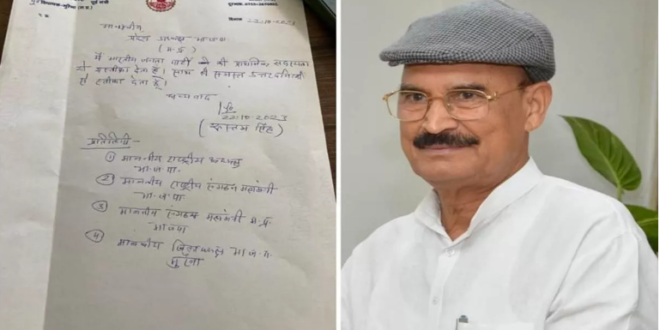 22.10.2023
माननीय
प्रदेश अध्यक्ष भाजपा
(म.प्र)
मैं भारतीय जनता पार्टी की प्राथमिक सदस्यता
से इस्तीफा देता हूँ। साथ ही समस्त उत्तरदायित्वों
से इस्तीफा देता हूँ।
धन्यवाद
22.10.2023
(रुस्तम सिंह)
प्रतिलिपि -
① माननीय राष्ट्रीय अध्यक्ष
भा.ज.पा.
② माननीय राष्ट्रीय संगठन महामंत्री
भा.ज.पा.
③ माननीय संगठन महामंत्री म.प्र
भाजपा
④ माननीय जिलाध्यक्ष भा.ज.पा.
मुरैना